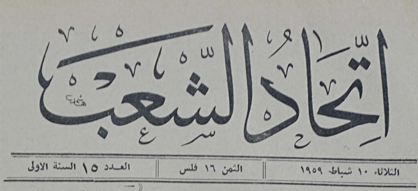 اتحاد الشعب
الثلاثاء ١٠ شباط ١٩٥٩ الثمن ١٦ فلس العدد ١٥ السنة الاولى